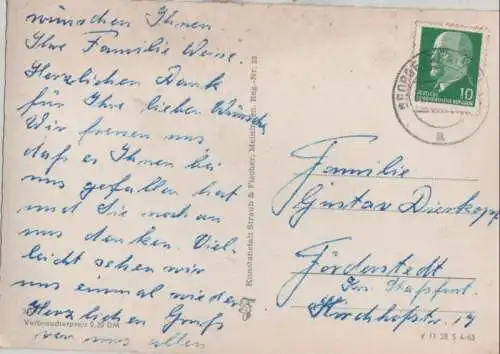 wünschen Ihnen
Ihre Familie Weise.
Herzlichen Dank
für Ihre lieben Wünsche
Wir freuen uns
daß es Ihnen bei
uns gefallen hat
und Sie noch an
uns denken. Viel-
leicht sehen wir
uns einmal wieder
Herzlichen Gruß
von uns allen
Verbraucherpreis 0,20 DM
Kunstanstalt Straub & Fischer, Meiningen, Reg.-Nr. 23
10
Familie
Gustav Dierkopp
Förderstedt
Krs. Staßfurt
Kirchhofstr. 14
V 11 28 S 4-63